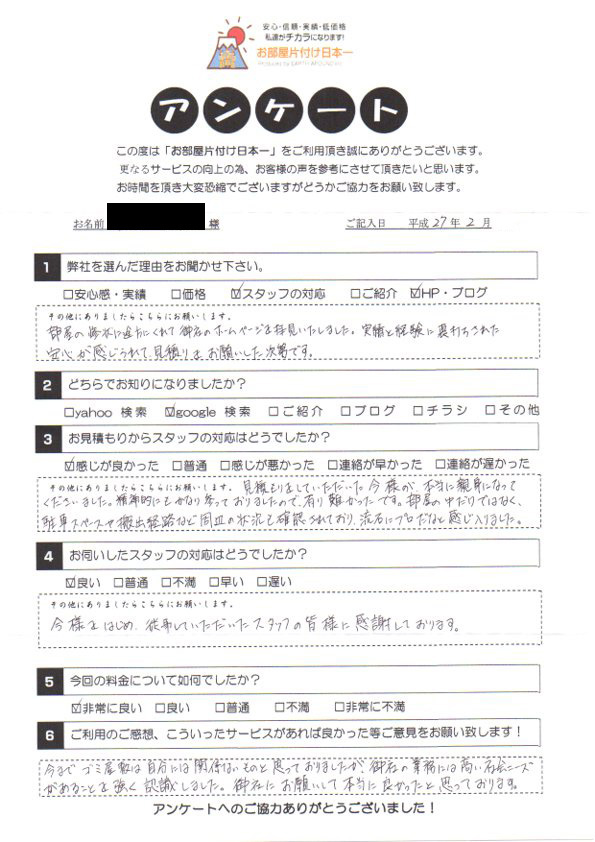 安心・信頼・実績・低価格
私達がチカラになります!
お部屋片付け日本一
アンケート
この度は「お部屋片付け日本一」をご利用頂き誠にありがとうございます。
更なるサービスの向上の為、お客様の声を参考にさせて頂きたいと思います。
お時間を頂き大変恐縮でございますがどうかご協力をお願い致します。
お名前 様 ご記入日 平成 27年 2月
1 弊社を選んだ理由をお聞かせ下さい。
□安心感・実績 □価格 ☑スタッフの対応 □ご紹介 ☑HP・ブログ
その他にありましたらこちらにお願いします。
部屋の惨状に途方にくれて御社のホームページを拝見いたしました。実績と経験に裏打ちされた
安心が感じられて、見積りをお願いした次第です。
2 どちらでお知りになりましたか?
□yahoo 検索 ☑google 検索 □ご紹介 □ブログ □チラシ □その他
3 お見積もりからスタッフの対応はどうでしたか?
☑感じが良かった □普通 □感じが悪かった □連絡が早かった □連絡が遅かった
その他にありましたらこちらにお願いします。 見積もりをしていただいた今様が、本当に親身になって
くださいました。精神的にもかなり参っておりましたので、有り難かったです。部屋の中だけではなく、
駐車スペースや搬出経路など周辺の状況も確認されており、流石にプロだなと感じ入りました。
4 お伺いしたスタッフの対応はどうでしたか?
☑良い □普通 □不満 □早い □遅い
その他にありましたらこちらにお願いします。
今様をはじめ、従事していただいたスタッフの皆様に感謝しております。
5 今回の料金について如何でしたか?
☑非常に良い □良い □普通 □不満 □非常に不満
6 ご利用のご感想、こういったサービスがあれば良かった等ご意見をお願い致します!
今まで ゴミ屋敷は自分には関係ないものと思っておりましたが、御社の業務には高い社会ニーズ
があることを強く認識しました。御社にお願いして本当に良かったと思っております。
アンケートへのご協力ありがとうございました!